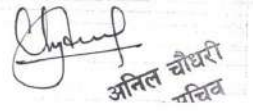 अनिल चौधरी
सचिव